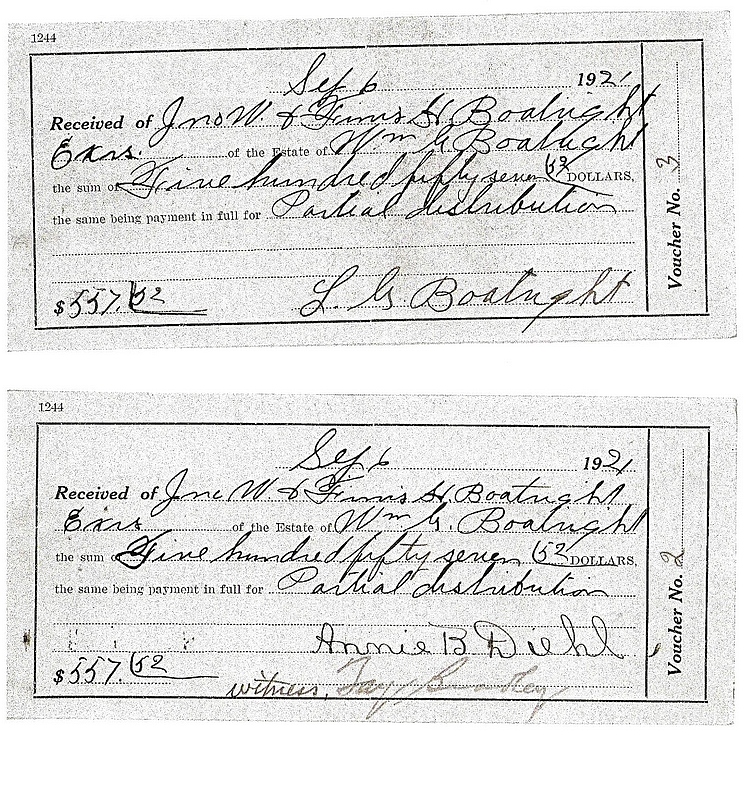 1244
Sep 6 1921
Received of Jno W. & Finis H. Boatright
Exrs of the Estate of Wm G. Boatright
the sum of Five hundred fifty seven 52 DOLLARS,
the same being payment in full for Partial distribution
$557.52 L G Boatright
Voucher No. 3
1244
Sep 6 1921
Received of Jno W & Finis H. Boatright
Exrs of the Estate of Wm G. Boatright
the sum of Five hundred fifty seven 52 DOLLARS,
the same being payment in full for Partial distribution
Annie B Diehl
$557.52
witness, Fay
Voucher No. 2